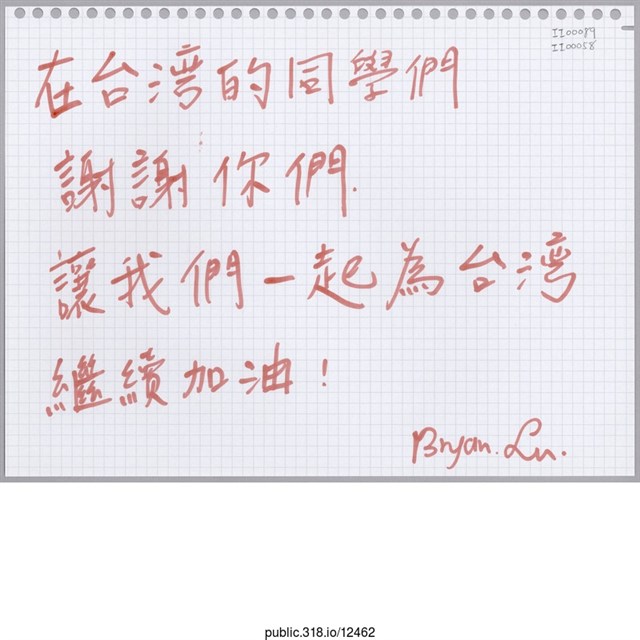 II00089
II00058
在台湾的同學們
謝謝你們.
讓我們一起為台湾
繼續加油！
Bryan. Lu.
public.318.io/12462